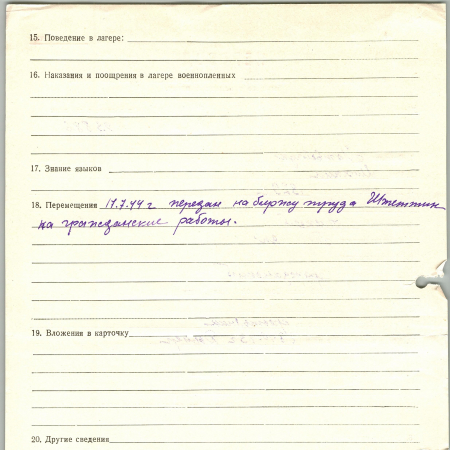 15. Поведение в лагере:
16. Наказания и поощрения в лагере военнопленных
17. Знание языков
18. Перемещения 17.7.44 г передан на биржу труда Штеттин
на гражданские работы.
19. Вложения в карточку
20. Другие сведения